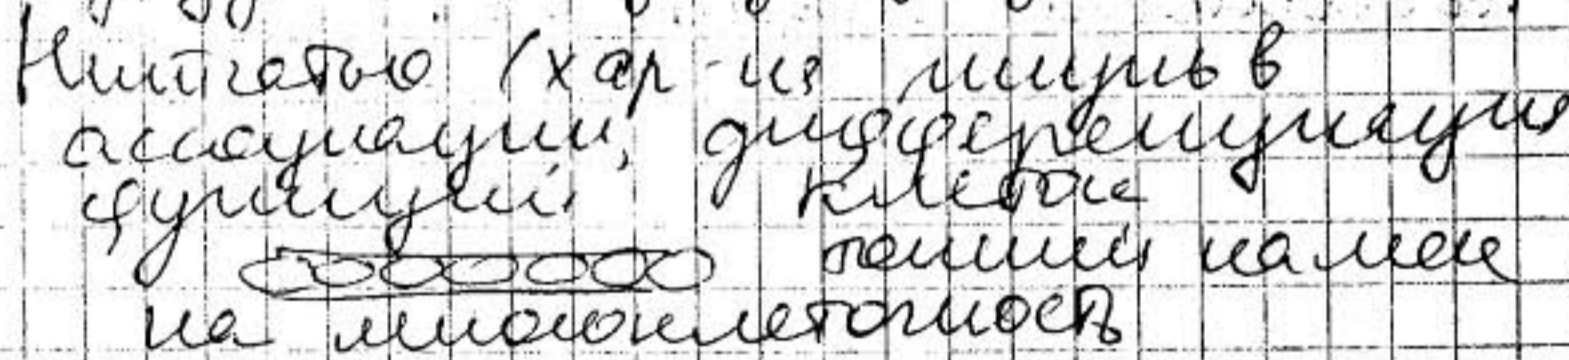 Нитчатые (хар-ца жизнь в
ассоциации, дифференциация
функций клеток
тонкий намек
на многоклеточность